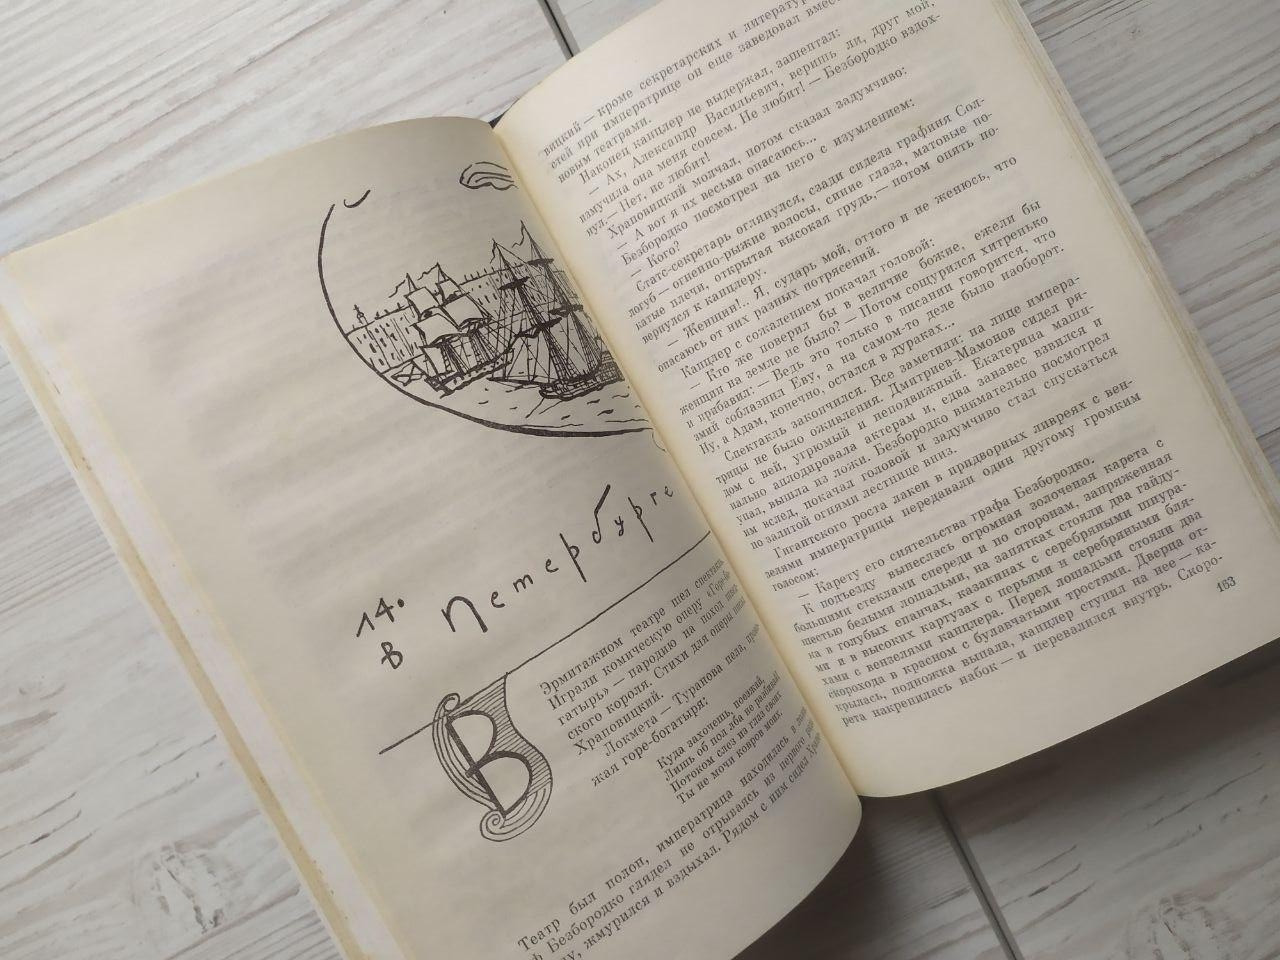 14.
в Петербурге
В
Эрмитажном театре шел спектакль.
Играли комическую оперу «Горе-бо-
гатырь» — пародию на поход швед-
ского короля. Стихи для оперы писал
Храповицкий.
Локмета — Туранова пела, прово-
жая горе-богатыря:
Куда захочешь, поезжай,
Лишь об пол лба не разбивай,
Потоком слез из глаз своих
Ты не мочи ковров моих.
Театр был полон, императрица находилась в
Безбородко глядел не отрываясь из первого
жмурился и вздыхал. Рядом с ним сидел
вицкий — кроме секретарских и
стей при императрице он еще заведовал
новым театрами.
Наконец канцлер не выдержал, зашептал:
— Ах, Александр Васильевич, веришь ли, друг мой,
измучила она меня совсем. Не любит! — Безбородко вздох-
нул.— Нет, не любит!
Храповицкий молчал, потом сказал задумчиво:
— А вот я их весьма опасаюсь...
Безбородко посмотрел на него с изумлением:
— Кого?
Статс-секретарь оглянулся, сзади сидела графиня Сол-
логуб — огненно-рыжие волосы, синие глаза, матовые по-
катые плечи, открытая высокая грудь,— потом опять по-
вернулся к канцлеру.
— Женщин!.. Я, сударь мой, оттого и не женюсь, что
опасаюсь от них разных потрясений.
Канцлер с сожалением покачал головой:
— Кто же поверил бы в величие божие, ежели бы
женщин на земле не было? — Потом сощурился хитренько
и прибавил: — Ведь это только в писании говорится, что
змий соблазнил Еву, а на самом-то деле было наоборот.
Ну, а Адам, конечно, остался в дураках...
Спектакль закончился. Все заметили: на лице импера-
трицы не было оживления. Дмитриев-Мамонов сидел ря-
дом с ней, угрюмый и неподвижный. Екатерина маши-
нально аплодировала актерам и, едва занавес взвился и
упал, вышла из ложи. Безбородко внимательно посмотрел
им вслед, покачал головой и задумчиво стал спускаться
по залитой огнями лестнице вниз.
Гигантского роста лакеи в придворных ливреях с вен-
зелями императрицы передавали один другому громким
голосом:
— Карету его сиятельства графа Безбородко.
К подъезду вынеслась огромная золоченая карета с
большими стеклами спереди и по сторонам, запряженная
шестью белыми лошадьми, на запятках стояли два гайду-
ка в голубых епанчах, казакинах с серебряными шнура-
ми и в высоких картузах с перьями и серебряными бля-
хами с вензелями канцлера. Перед лошадьми стояли два
скорохода в красном с булавчатыми тростями. Дверца от-
крылась, подножка выпала, канцлер ступил на нее — ка-
рета накренилась набок — и перевалился внутрь. Скоро-
163